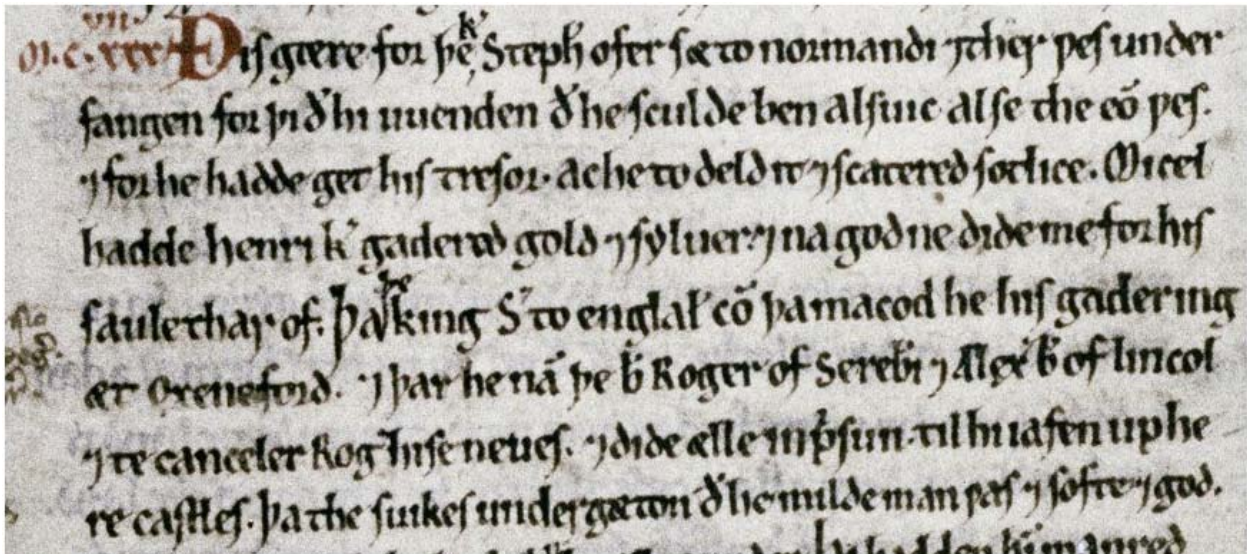 .vii.
M.C.xxx Ðis gære for þe k̄ Steph̄ ofer sæ to normandi ⁊ ther ƿes under
fangen for þi ð hi uuenden ð he sculde ben alsuic alse the eō ƿes.
⁊ for he hadde get his tresor. ac he to deld it ⁊ scatered sotlice. Micel
hadde henri k̄ gadered gold ⁊ syluer. ⁊ na god ne dide me for his
saule thar of. Þa þe king S̄ to englal' cō þa macod he his gadering
æt Oxeneford. ⁊ þar he nā þe b̄ Roger of Sereb̄i ⁊ Alex b̄ of lincol
⁊ te canceler Roḡ hise neues. ⁊ dide ælle in p̄sun. til hi iafen up he
re castles. Þa the suikes undergæton ð he milde man ƿas ⁊ softe ⁊ god.